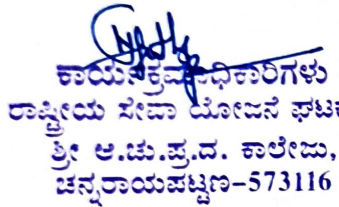 ಕಾರ್ಯಕ್ರಮಾಧಿಕಾರಿಗಳು
ರಾಷ್ಟ್ರೀಯ ಸೇವಾ ಯೋಜನೆ ಘಟಕ
ಶ್ರೀ ಆ.ಚು.ಪ್ರ.ದ. ಕಾಲೇಜು,
ಚನ್ನರಾಯಪಟ್ಟಣ-573116